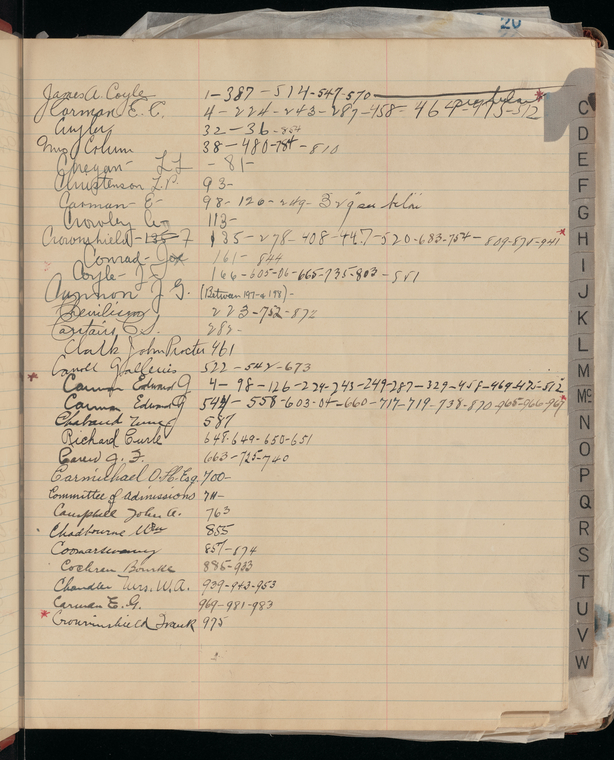 20
James A. Coyle 1-387-514-547-570
Carman E. C. 4-224-243-287-458-464-475-512
Cuyler 32-36-854
Mrs Colum 38-480-784-810
Chegan- -81-
Christenson L.P. 93-
Carman- E- 98-126-249-329 see below
Crowley Co 113-
Crowninshield- F 135-278-408-447-520-683-754-809-878-941
Conrad- Jos 161-844
Coyle- J 166-605-06-665-735-803-881
J. G. (Between 197-198)-
223-752-872
282-
Clark John Procter 461
Galleries 522-542-673
Carman Edward G 4-98-126-224-243-249-287-329-458-464-475-512
Carman Edward G 542-558-603-04-660-717-719-738-870-965-966-967
587
Richard Curle 648-649-650-651
Carew J. F. 663-725-740
Carmichael O. H. Esq. 700-
Committee of Admissions 711-
Campbell John A. 763
Chadbourne Wm 855
Coomaraswamy 857-874
Cochran Bourke 886-943
Chandler Mrs. W.A. 939-943-953
Carman E. G. 969-981-983
Crowninshield Frank 975
C
D
E
F
G
H
I
J
K
L
M
Mc
N
O
P
Q
R
S
T
U
V
W